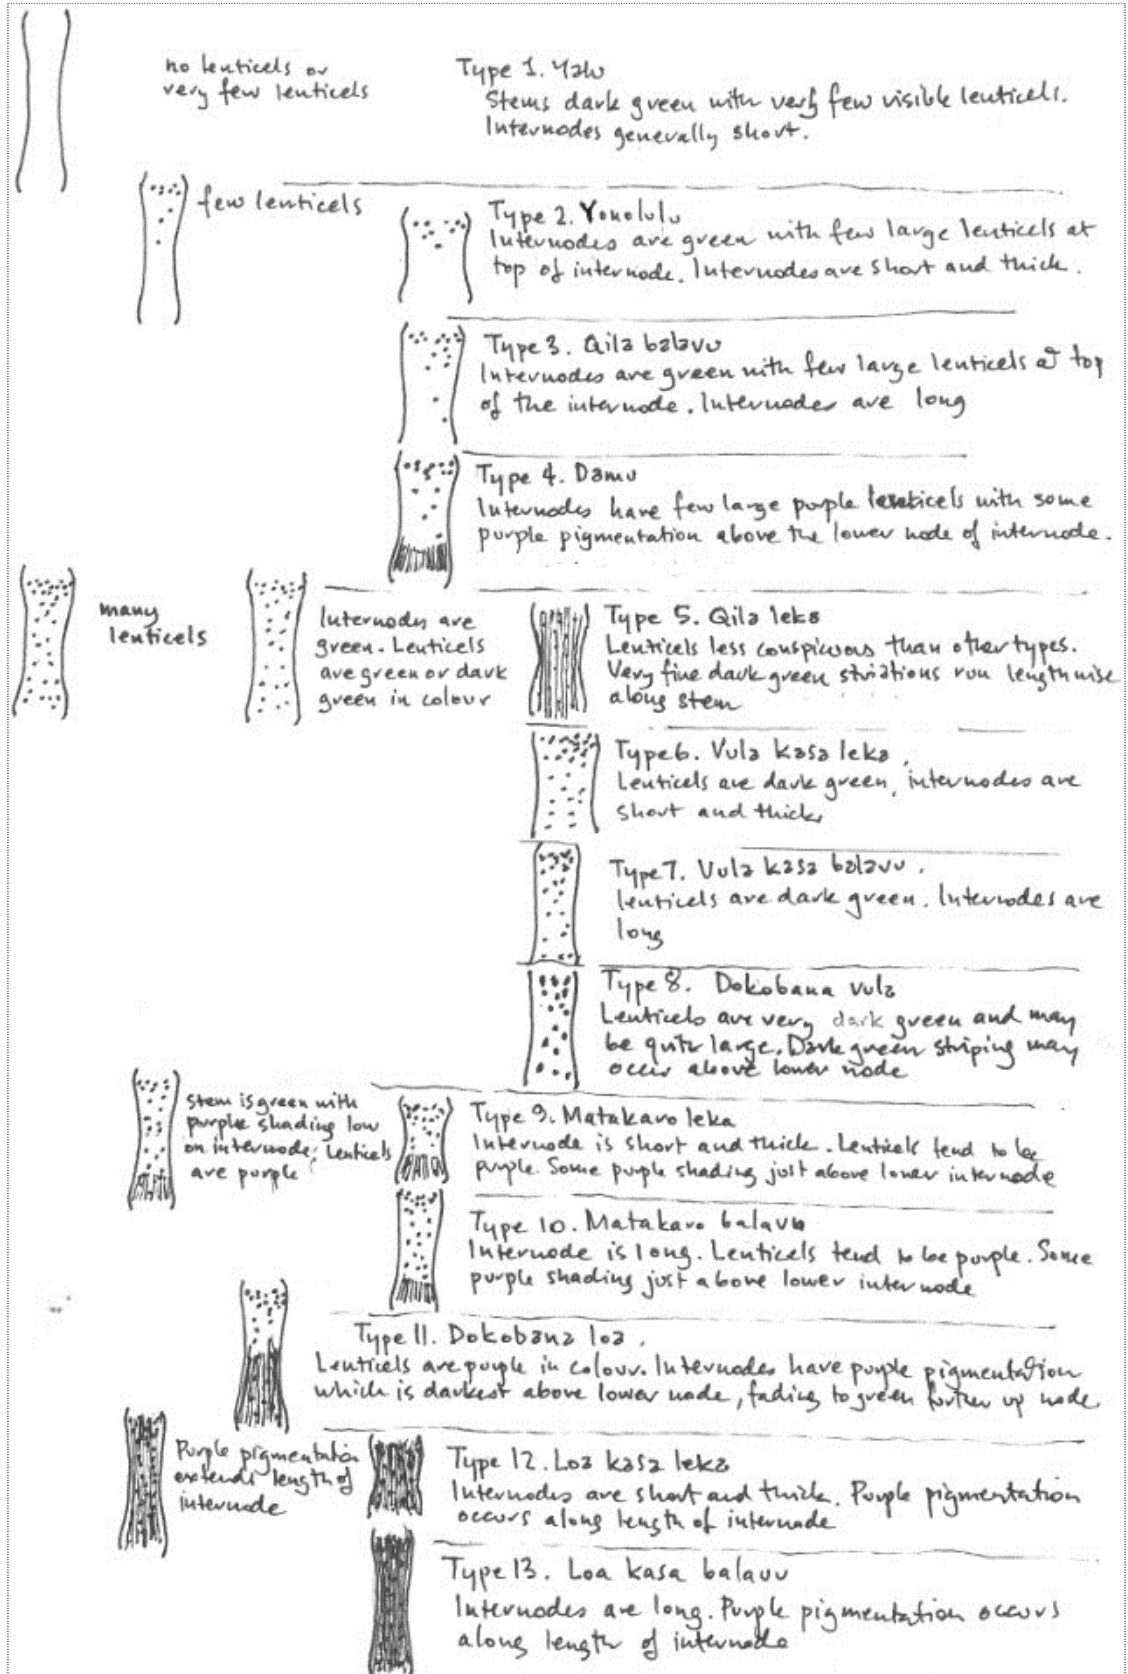 no lenticels or
very few lenticels
Type 1. Yalu
Stems dark green with very few visible lenticels.
Internodes generally short.
few lenticels
Type 2. Yonolulu
Internodes are green with few large lenticels at
top of internode. Internodes are short and thick.
Type 3. Qila balavu
Internodes are green with few large lenticels at top
of the internode. Internodes are long
Type 4. Damu
Internodes have few large purple lenticels with some
purple pigmentation above the lower node of internode.
many
lenticels
Internodes are
green. Lenticels
are green or dark
green in colour
Type 5. Qila leka
Lenticels less conspicuous than other types.
Very fine dark green striations run lengthwise
along stem
Type 6. Vula kasa leka.
Lenticels are dark green, internodes are
short and thick
Type 7. Vula kasa balavu.
lenticels are dark green. Internodes are
long
Type 8. Dokobana vula
Lenticels are very dark green and may
be quite large. Dark green striping may
occur above lower node
Stem is green with
purple shading low
on internode; lenticels
are purple
Type 9. Matakaro leka
Internode is short and thick. Lenticels tend to be
purple. Some purple shading just above lower internode
Type 10. Matakaro balavu
Internode is long. Lenticels tend to be purple. Some
purple shading just above lower internode
Type 11. Dokobana loa.
Lenticels are purple in colour. Internodes have purple pigmentation
which is darkest above lower node, fading to green further up node
Purple pigmentation
extends length of
internode
Type 12. Loa kasa leka
Internodes are short and thick. Purple pigmentation
occurs along length of internode
Type 13. Loa kasa balavu
Internodes are long. Purple pigmentation occurs
along length of internode